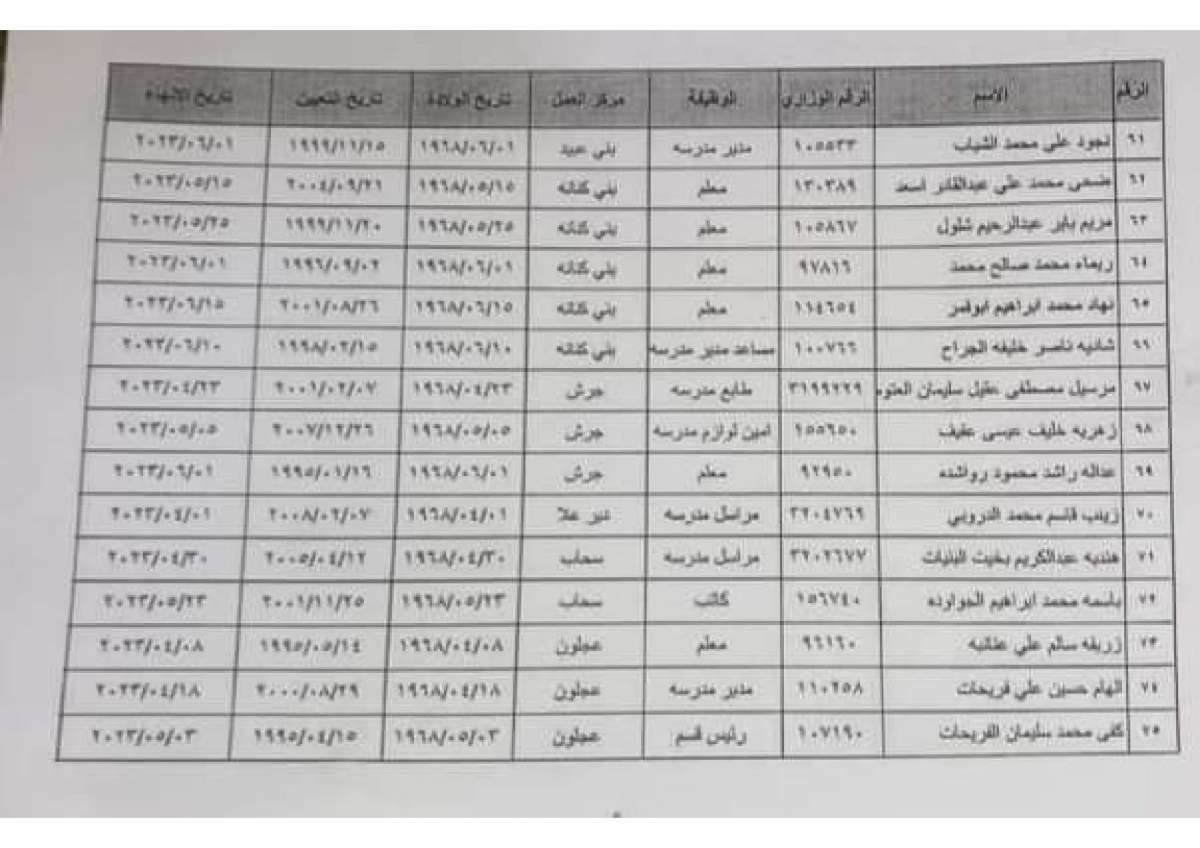 الرقم الاسم الرقم الوزاري الوظيفة مركز العمل تاريخ الولادة تاريخ التعيين تاريخ الانهاء
٦١ نجود علي محمد الشياب ١٠٥٥٣٣ مدير مدرسه بني عبيد ١٩٦٨/٠٦/٠١ ١٩٩٩/١١/١٥ ٢٠٢٣/٠٦/٠١
٦٢ ضحى محمد علي عبدالقادر اسعد ١٣٠٣٨٩ معلم بني كنانه ١٩٦٨/٠٥/١٥ ٢٠٠٤/٠٩/٢١ ٢٠٢٣/٠٥/١٥
٦٣ مريم باير عبدالرحيم شلول ١٠٥٨٦٧ معلم بني كنانه ١٩٦٨/٠٥/٢٥ ١٩٩٩/١١/٢٠ ٢٠٢٣/٠٥/٢٥
٦٤ ريماء محمد صالح محمد ٩٧٨١٦ معلم بني كنانه ١٩٦٨/٠٦/٠١ ١٩٩٦/٠٩/٠٢ ٢٠٢٣/٠٦/٠١
٦٥ نهاد محمد ابراهيم ابوقمر ١١٤٦٥٤ معلم بني كنانه ١٩٦٨/٠٦/١٥ ٢٠٠١/٠٨/٢٦ ٢٠٢٣/٠٦/١٥
٦٦ شاديه ناصر خليفه الجراح ١٠٠٧٦٦ مساعد مدير مدرسه بني كنانه ١٩٦٨/٠٦/١٠ ١٩٩٨/٠٢/١٥ ٢٠٢٣/٠٦/١٠
٦٧ مرسيل مصطفى عقيل سليمان العتوم ٣١٩٩٢٢٩ طابع مدرسه جرش ١٩٦٨/٠٤/٢٣ ٢٠٠١/٠٢/٠٧ ٢٠٢٣/٠٤/٢٣
٦٨ زهريه خليف عيسى عفيف ١٥٥٦٥٠ امين لوازم مدرسه جرش ١٩٦٨/٠٥/٠٥ ٢٠٠٧/١٢/٢٦ ٢٠٢٣/٠٥/٠٥
٦٩ عداله راشد محمود رواشده ٩٢٩٥٠ معلم جرش ١٩٦٨/٠٦/٠١ ١٩٩٥/٠١/١٦ ٢٠٢٣/٠٦/٠١
٧٠ زينب قاسم محمد الدروبي ٣٢٠٤٧٦٩ مراسل مدرسه دير علا ١٩٦٨/٠٤/٠١ ٢٠٠٨/٠٢/٠٧ ٢٠٢٣/٠٤/٠١
٧١ هنديه عبدالكريم بخيت البنيات ٣٢٠٢٦٧٧ مراسل مدرسه سحاب ١٩٦٨/٠٤/٣٠ ٢٠٠٥/٠٤/١٢ ٢٠٢٣/٠٤/٣٠
٧٢ باسمه محمد ابراهيم الجواوده ١٥٦٧٤٠ كاتب سحاب ١٩٦٨/٠٥/٢٣ ٢٠٠١/١١/٢٥ ٢٠٢٣/٠٥/٢٣
٧٣ زريفه سالم علي عنانبه ٩٦١٦٠ معلم عجلون ١٩٦٨/٠٤/٠٨ ١٩٩٥/٠٥/١٤ ٢٠٢٣/٠٤/٠٨
٧٤ الهام حسين علي فريحات ١١٠٢٥٨ مدير مدرسه عجلون ١٩٦٨/٠٤/١٨ ٢٠٠٠/٠٨/٢٩ ٢٠٢٣/٠٤/١٨
٧٥ كفى محمد سليمان الفريحات ١٠٧١٩٠ رئيس قسم عجلون ١٩٦٨/٠٥/٠٣ ١٩٩٥/٠٤/١٥ ٢٠٢٣/٠٥/٠٣